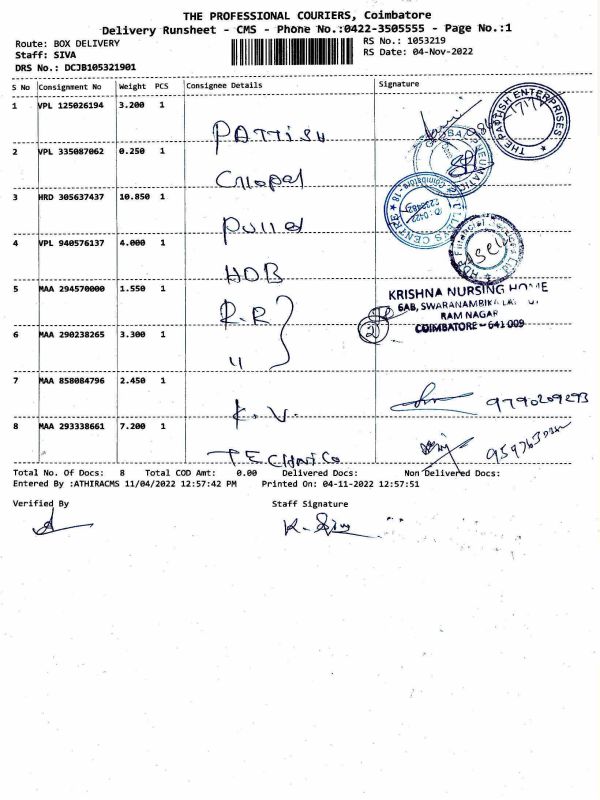 THE PROFESSIONAL COURIERS, Coimbatore
Delivery Runsheet - CMS - Phone No.:0422-3505555 - Page No.:1
Route: BOX DELIVERY
RS No.: 1053219
Staff: SIVA
RS Date: 04-Nov-2022
DRS No.: DCJB105321901
S No Consignment No Weight PCS Consignee Details Signature
1 VPL 125026194 3.200 1
THE PATHISH ENTERPRISES
2 VPL 335087062 0.250 1
3 HRD 305637437 10.850 1
4 VPL 940576137 4.000 1
HDB
5 MAA 294570000 1.550 1
R.R
KRISHNA NURSING HOME
6AB, SWARANAMBIKA
RAM NAGAR
COIMBATORE - 641 009
2
6 MAA 290238265 3.300 1
"
7 MAA 858084796 2.450 1
K. V.
9790209293
8 MAA 293338661 7.200 1
TECHNICO
Total No. Of Docs: 8 Total COD Amt: 0.00 Delivered Docs: Non Delivered Docs:
Entered By :ATHIRACMS 11/04/2022 12:57:42 PM Printed On: 04-11-2022 12:57:51
Verified By Staff Signature